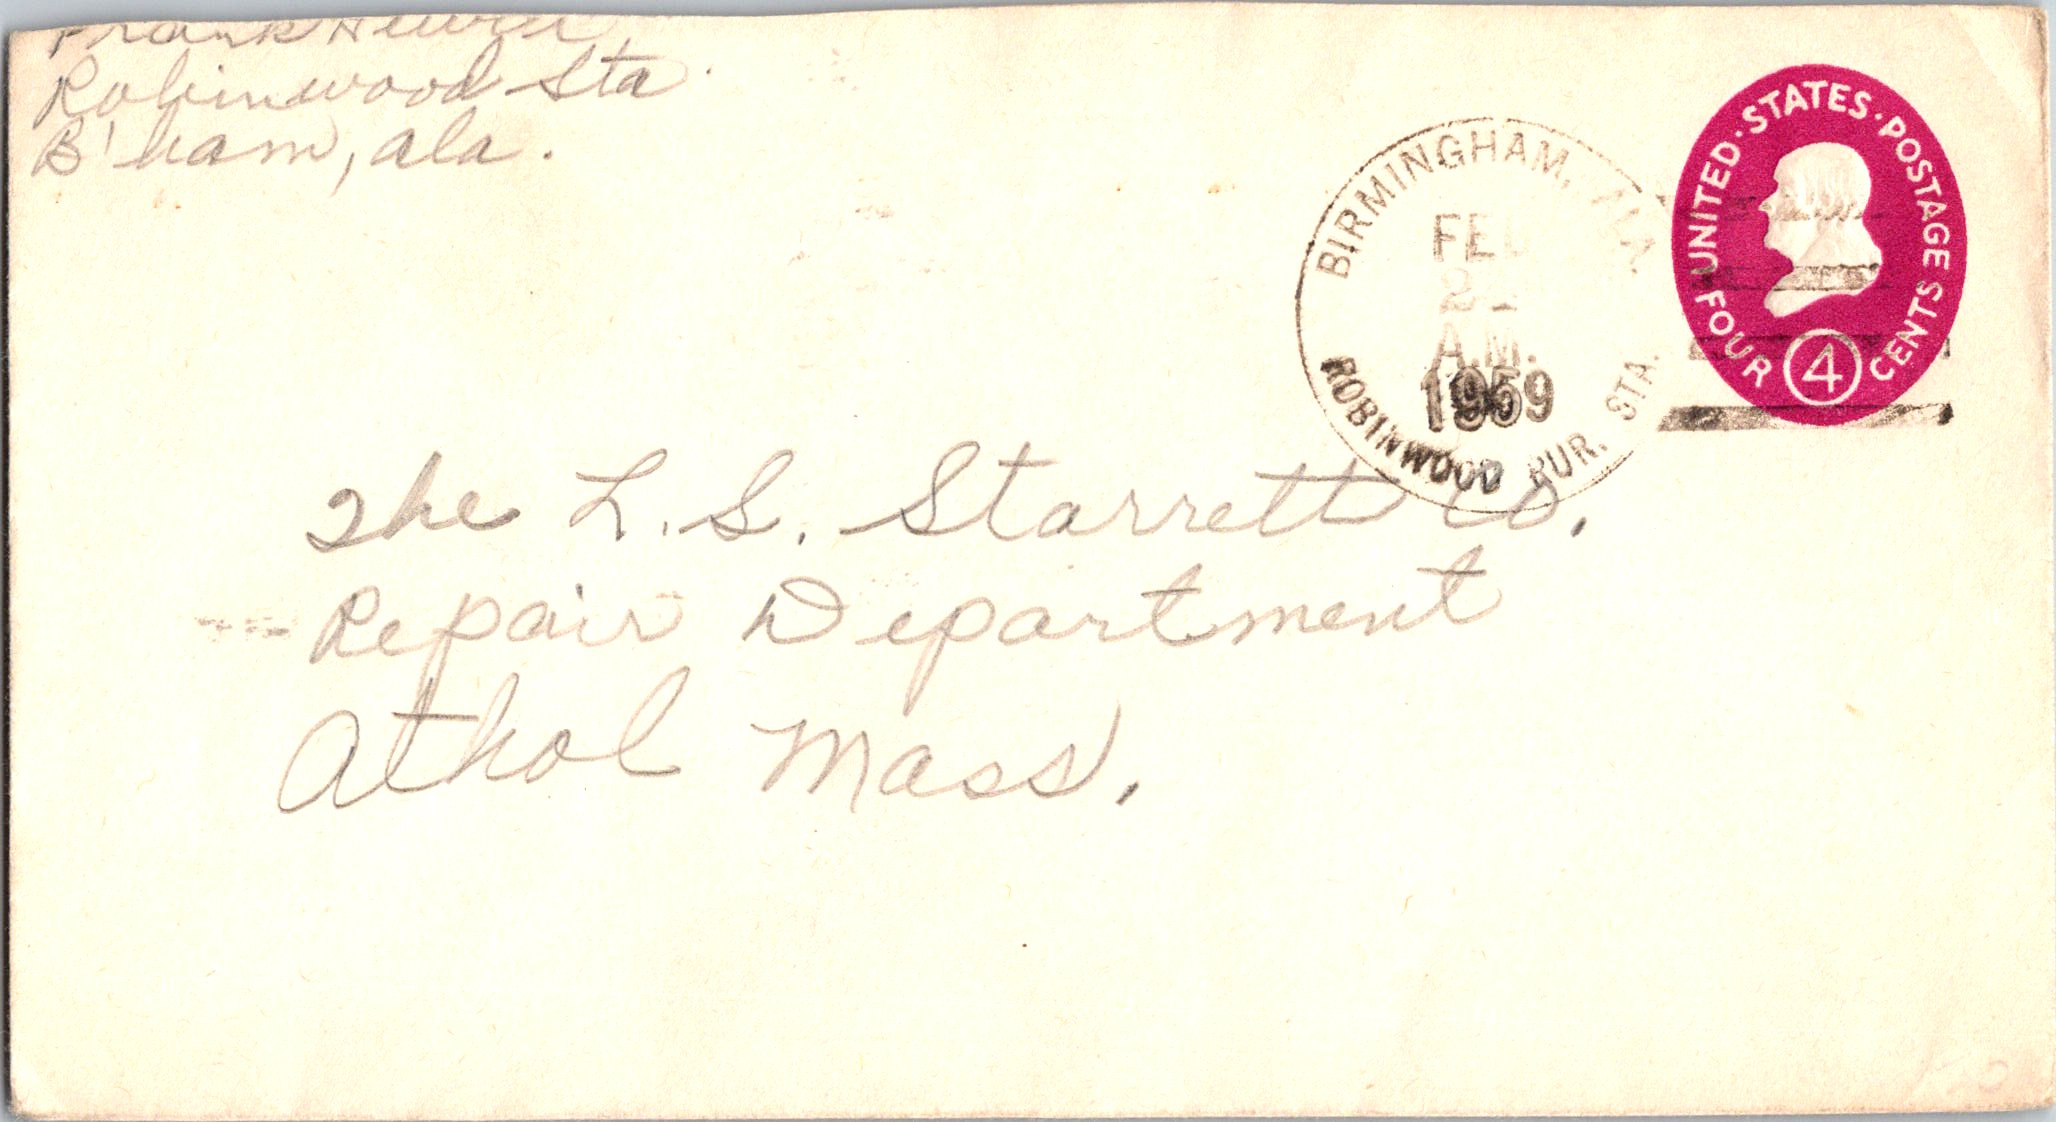 Frank
Robinwood Sta.
B'ham, ala.
BIRMINGHAM, ALA.
FEB
A.M.
1959
ROBINWOOD RUR. STA.
UNITED · STATES · POSTAGE
FOUR 4 CENTS
The L. S. Starrett Co.
Repair Department
Athol Mass.